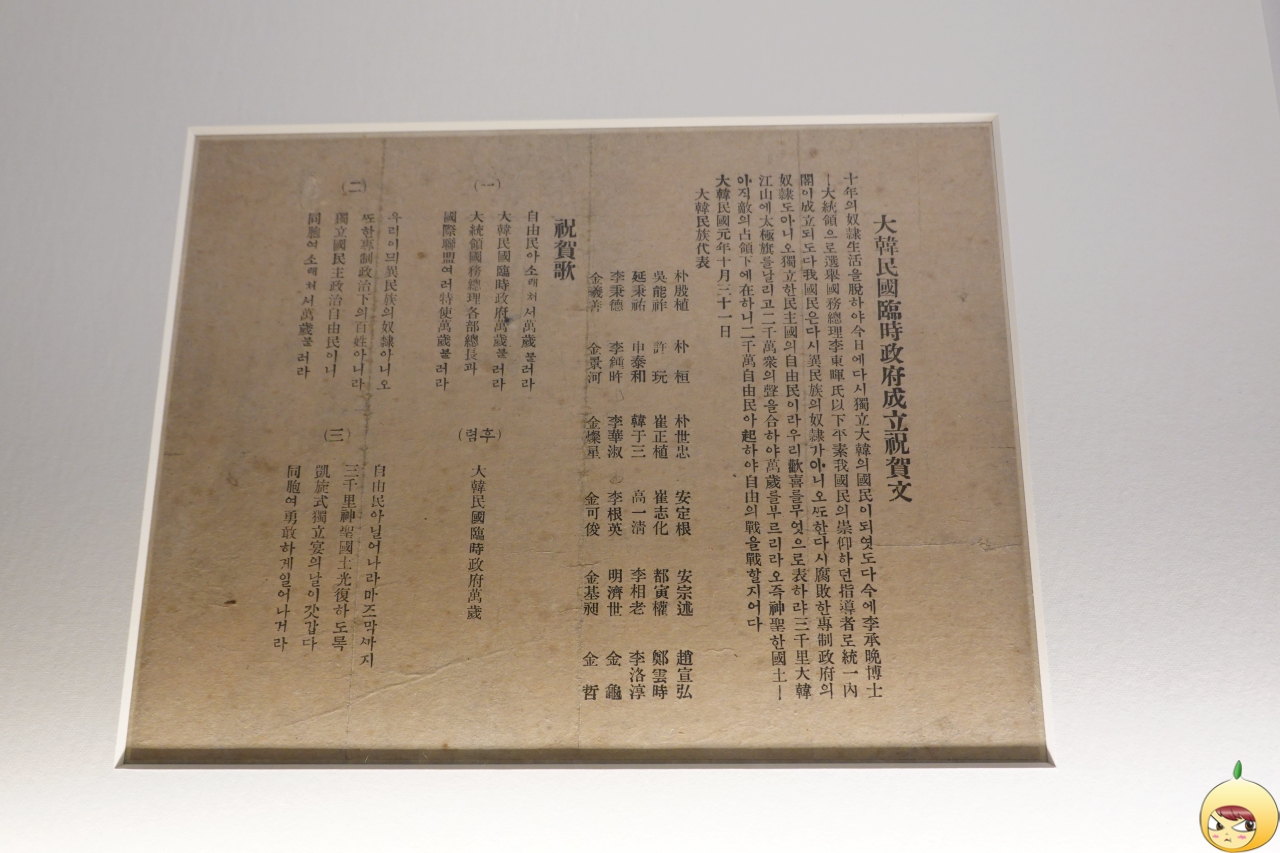 大韓民國臨時政府成立祝賀文
十年의奴隷生活을脫하야今日에다시獨立大韓의國民이되엿도다今에李承晩博士
ㅣ大統領으로選擧國務總理李東輝氏以下平素我國民의崇仰하던指導者로統一內
閣이成立되도다我國民은다시異民族의奴隷가아니오ᄯᅩ한다시腐敗한專制政府의
奴隷도아니오獨立한民主國의自由民이라우리歡喜를무엇으로表하랴三千里大韓
江山에太極旗를날리고二千萬衆의聲을合하야萬歲를부르리라오즉神聖한國土ㅣ
아직敵의占領下에在하니二千萬自由民아起하야自由의戰을戰할지어다
大韓民國元年十月三十一日
大韓民族代表
朴殷植 朴桓 朴世忠 安定根 安宗述 趙宣弘
吳能祚 許玩 崔正植 崔志化 都寅權 鄭雲時
延秉祐 申泰和 韓于三 高一淸 李相老 李洛淳
李秉德 李鍾旿 李華淑 李根英 明濟世 金龜
金羲善 金景河 金燦星 金可俊 金基昶 金哲
祝賀歌
自由民아소래처서萬歲불러라
(一)
大韓民國臨時政府萬歲불러라
大統領國務總理各部總長과
國際聯盟여러特使萬歲불러라
(후렴)
大韓民國臨時政府萬歲
(二)
우리이믜異民族의奴隷아니오
ᄯᅩ한專制政治下의百姓아니라
獨立國民主政治自由民이니
同胞여소래처서萬歲불러라
(三)
自由民아닐어나라마즈막ᄭᅡ지
三千里神聖國土光復하도록
凱旋式獨立宴의날이갓갑다
同胞여勇敢하게일어나거라